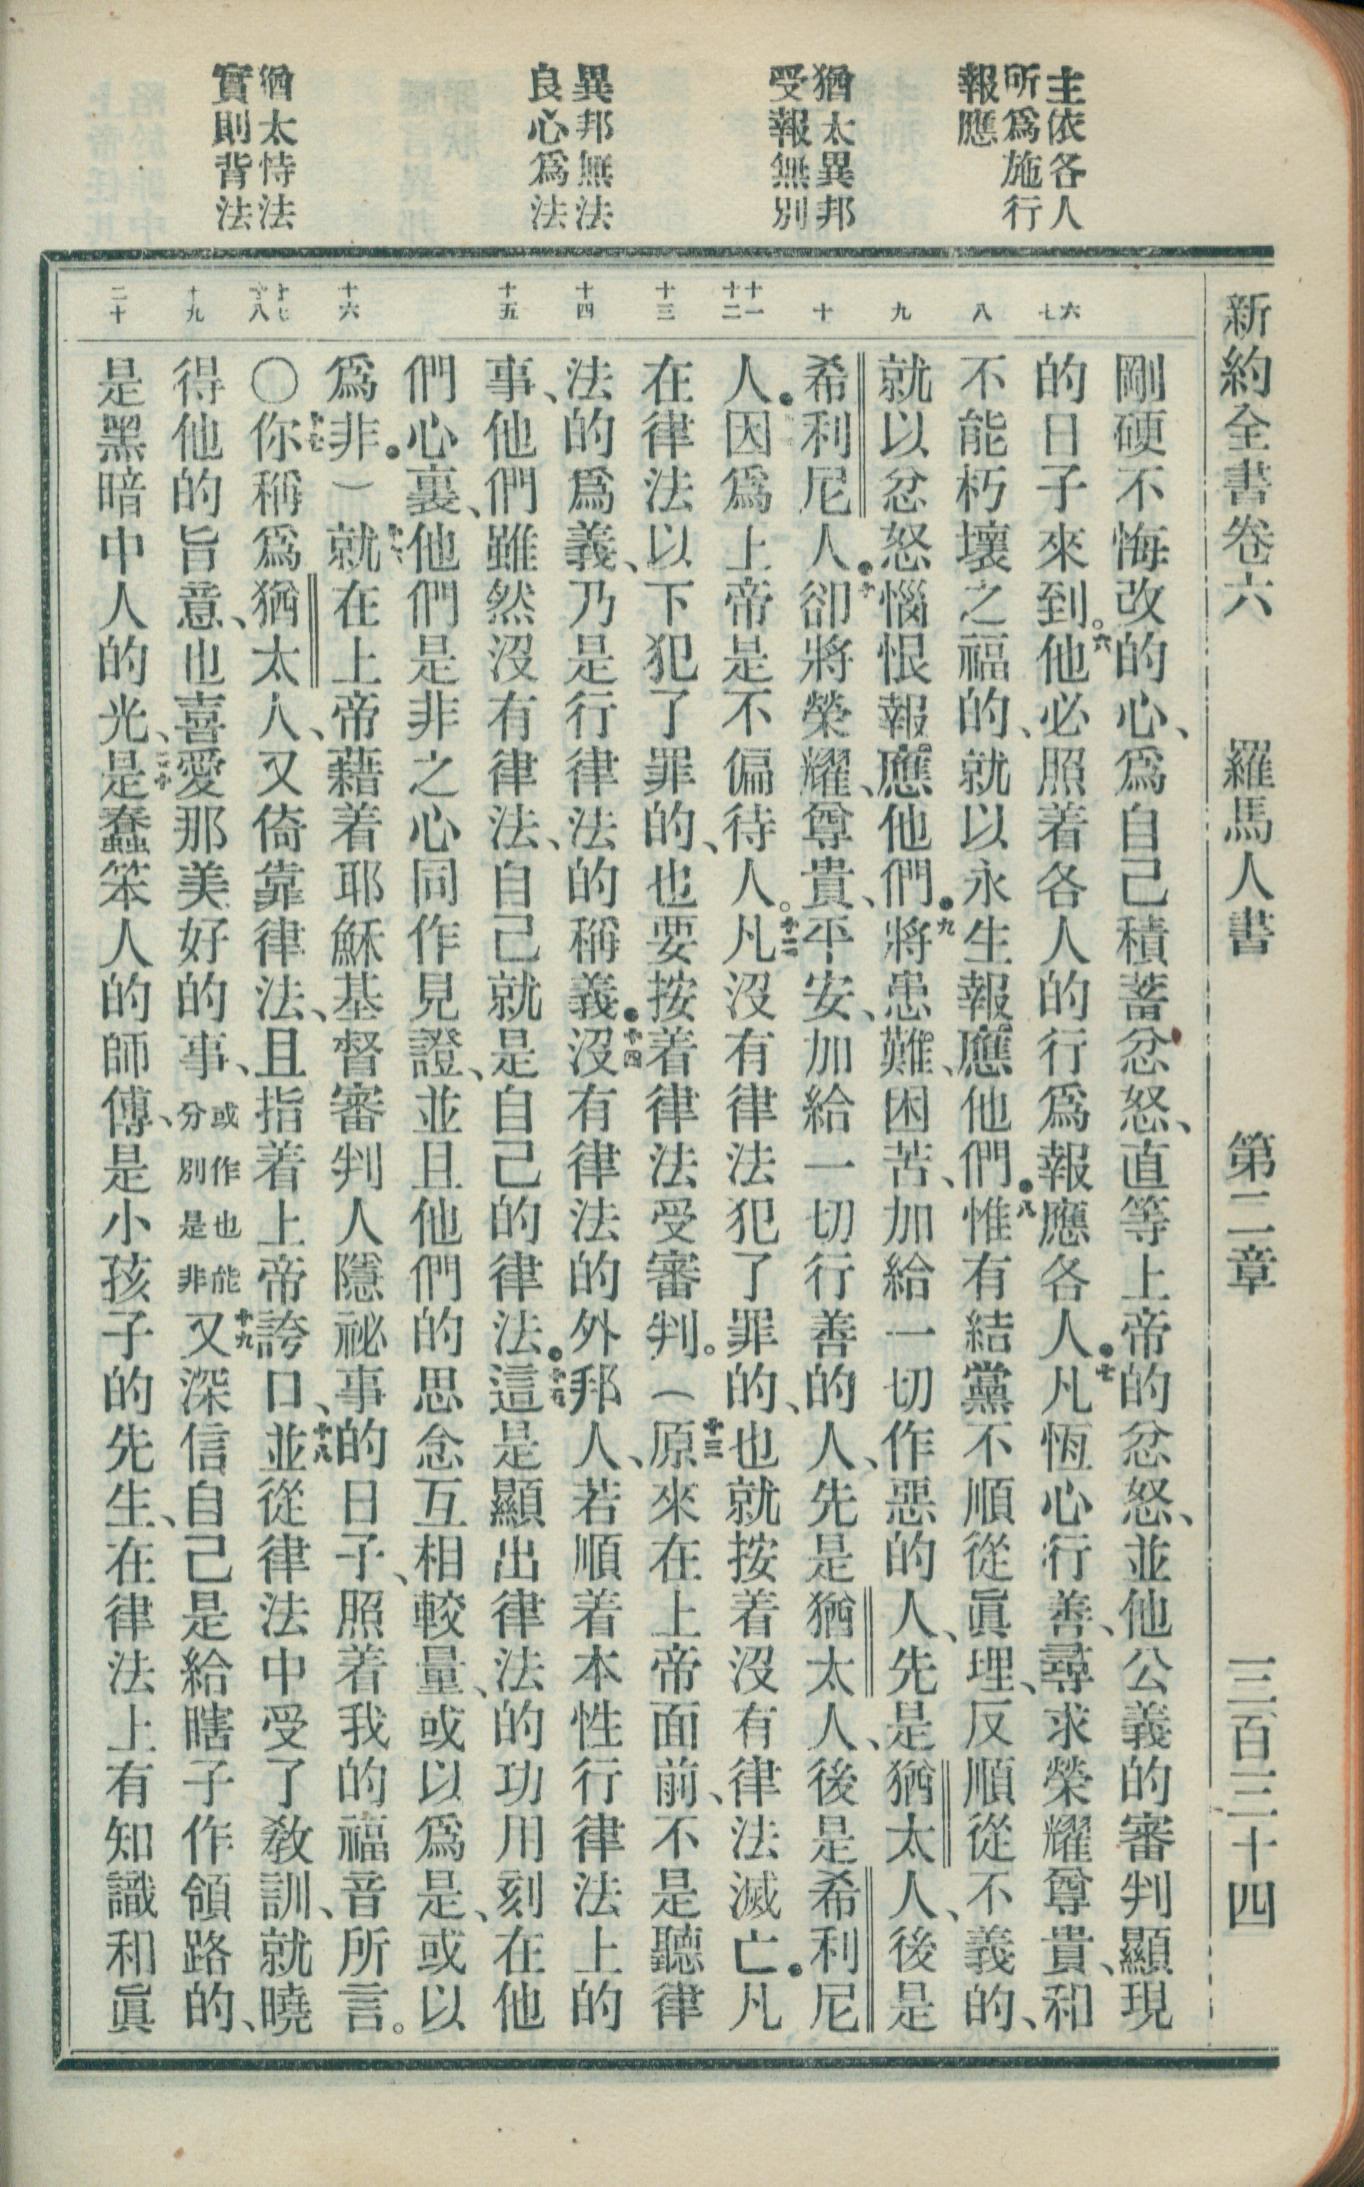 新約全書卷六　羅馬人書　第二章　三百三十四
主依各人
所爲施行
報應
猶太異邦
受報無別
異邦無法
良心爲法
猶太恃法
實則背法
六
七
八
九
十
十一
十二
十三
十四
十五
十六
十七
十八
十九
二十
剛硬不悔改的心、爲自己積蓄忿怒、直等上帝的忿怒、並他公義的審判顯現
的日子來到。六他必照着各人的行爲報應各人。七凡恆心行善、尋求榮耀尊貴、和
不能朽壞之福的、就以永生報應他們。八惟有結黨不順從眞理、反順從不義的、
就以忿怒惱恨報應他們。九將患難、困苦、加給一切作惡的人、先是猶太人、後是
希利尼人。十卻將榮耀、尊貴、平安、加給一切行善的人、先是猶太人、後是希利尼
人。十一因爲上帝是不偏待人。十二凡沒有律法犯了罪的、也就按着沒有律法滅亡。凡
在律法以下犯了罪的、也要按着律法受審判。（十三原來在上帝面前、不是聽律
法的爲義、乃是行律法的稱義。十四沒有律法的外邦人、若順着本性行律法上的
事、他們雖然沒有律法、自己就是自己的律法。十五這是顯出律法的功用刻在他
們心裏、他們是非之心同作見證、並且他們的思念互相較量、或以爲是、或以
爲非。）十六就在上帝藉着耶穌基督審判人隱祕事的日子、照着我的福音所言。
〇十七你稱爲猶太人、又倚靠律法、且指着上帝誇口、十八並從律法中受了教訓、就曉
得他的旨意、也喜愛那美好的事、或作也能分別是非十九又深信自己是給瞎子作領路的、
是黑暗中人的光、二十是蠢笨人的師傅、是小孩子的先生、在律法上有知識和眞